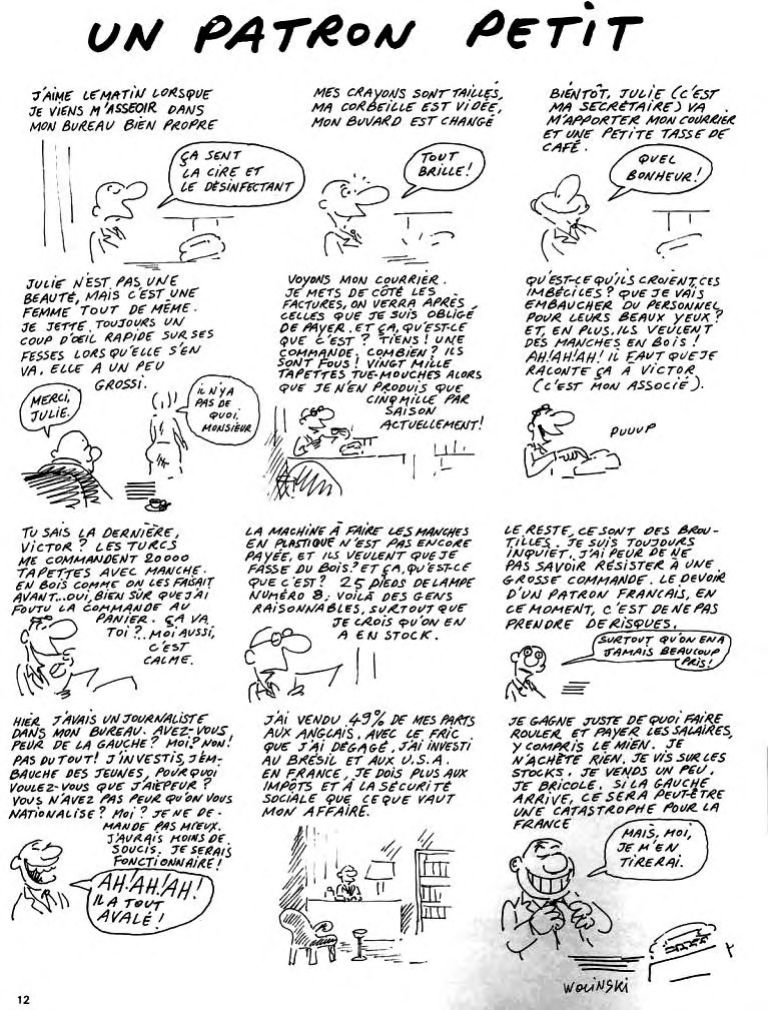 UN PATRON PETIT
J'AIME LE MATIN LORSQUE
JE VIENS M'ASSEOIR DANS
MON BUREAU BIEN PROPRE
ÇA SENT
LA CIRE ET
LE DÉSINFECTANT
MES CRAYONS SONT TAILLÉS,
MA CORBEILLE EST VIDÉE,
MON BUVARD EST CHANGÉ
TOUT
BRILLE!
BIENTÔT, JULIE (C'EST
MA SECRÉTAIRE) VA
M'APPORTER MON COURRIER
ET UNE PETITE TASSE DE
CAFÉ.
QUEL
BONHEUR!
JULIE N'EST PAS UNE
BEAUTÉ, MAIS C'EST UNE
FEMME TOUT DE MÊME.
JE JETTE TOUJOURS UN
COUP D'OEIL RAPIDE SUR SES
FESSES LORSQU'ELLE S'EN
VA. ELLE A UN PEU
GROSSI.
MERCI,
JULIE.
IL N'Y A
PAS DE
QUOI,
MONSIEUR
VOYONS MON COURRIER.
JE METS DE CÔTÉ LES
FACTURES, ON VERRA APRÈS
CELLES QUE JE SUIS OBLIGÉ
DE PAYER. ET ÇA, QU'EST-CE
QUE C'EST? TIENS! UNE
COMMANDE; COMBIEN? ILS
SONT FOUS! VINGT MILLE
TAPETTES TUE-MOUCHES ALORS
QUE JE N'EN PRODUIS QUE
CINQ MILLE PAR
SAISON
ACTUELLEMENT!
QU'EST-CE QU'ILS CROIENT, CES
IMBÉCILES? QUE JE VAIS
EMBAUCHER DU PERSONNEL
POUR LEURS BEAUX YEUX?
ET, EN PLUS, ILS VEULENT
DES MANCHES EN BOIS!
AH! AH! AH! IL FAUT QUE JE
RACONTE ÇA À VICTOR
(C'EST MON ASSOCIÉ).
PUUUP
TU SAIS LA DERNIÈRE,
VICTOR? LES TURCS
ME COMMANDENT 20000
TAPETTES AVEC MANCHE
EN BOIS COMME ON LES FAISAIT
AVANT...OUI, BIEN SÛR QUE J'AI
FOUTU LA COMMANDE AU
PANIER. ÇA VA,
TOI? MOI AUSSI,
C'EST
CALME.
LA MACHINE À FAIRE LES MANCHES
EN PLASTIQUE N'EST PAS ENCORE
PAYÉE, ET ILS VEULENT QUE JE
FASSE DU BOIS! ET ÇA, QU'EST-CE
QUE C'EST? 25 PIEDS DE LAMPE
NUMÉRO 8; VOILÀ DES GENS
RAISONNABLES, SURTOUT QUE
JE CROIS QU'ON EN
A EN STOCK.
LE RESTE, CE SONT DES BROU-
TILLES. JE SUIS TOUJOURS
INQUIET, J'AI PEUR DE NE
PAS SAVOIR RÉSISTER À UNE
GROSSE COMMANDE. LE DEVOIR
D'UN PATRON FRANÇAIS, EN
CE MOMENT, C'EST DE NE PAS
PRENDRE DE RISQUES.
SURTOUT QU'ON EN A
JAMAIS BEAUCOUP
PRIS!
HIER J'AVAIS UN JOURNALISTE
DANS MON BUREAU. AVEZ-VOUS
PEUR DE LA GAUCHE? MOI? NON!
PAS DU TOUT! J'INVESTIS, J'EM-
BAUCHE DES JEUNES, POURQUOI
VOULEZ-VOUS QUE J'AIE PEUR?
VOUS N'AVEZ PAS PEUR QU'ON VOUS
NATIONALISE? MOI? JE NE DE-
MANDE PAS MIEUX.
J'AURAIS MOINS DE
SOUCIS. JE SERAIS
FONCTIONNAIRE!
AH! AH! AH!
IL A TOUT
AVALÉ!
J'AI VENDU 49% DE MES PARTS
AUX ANGLAIS. AVEC LE FRIC
QUE J'AI DÉGAGÉ, J'AI INVESTI
AU BRÉSIL ET AUX U.S.A.
EN FRANCE, JE DOIS PLUS AUX
IMPÔTS ET À LA SÉCURITÉ
SOCIALE QUE CE QUE VAUT
MON AFFAIRE.
JE GAGNE JUSTE DE QUOI FAIRE
ROULER ET PAYER LES SALAIRES,
Y COMPRIS LE MIEN. JE
N'ACHÈTE RIEN. JE VIS SUR LES
STOCKS. JE VENDS UN PEU,
JE BRICOLE. SI LA GAUCHE
ARRIVE, CE SERA PEUT-ÊTRE
UNE CATASTROPHE POUR LA
FRANCE
MAIS, MOI,
JE M'EN
TIRERAI.
WOLINSKI
12